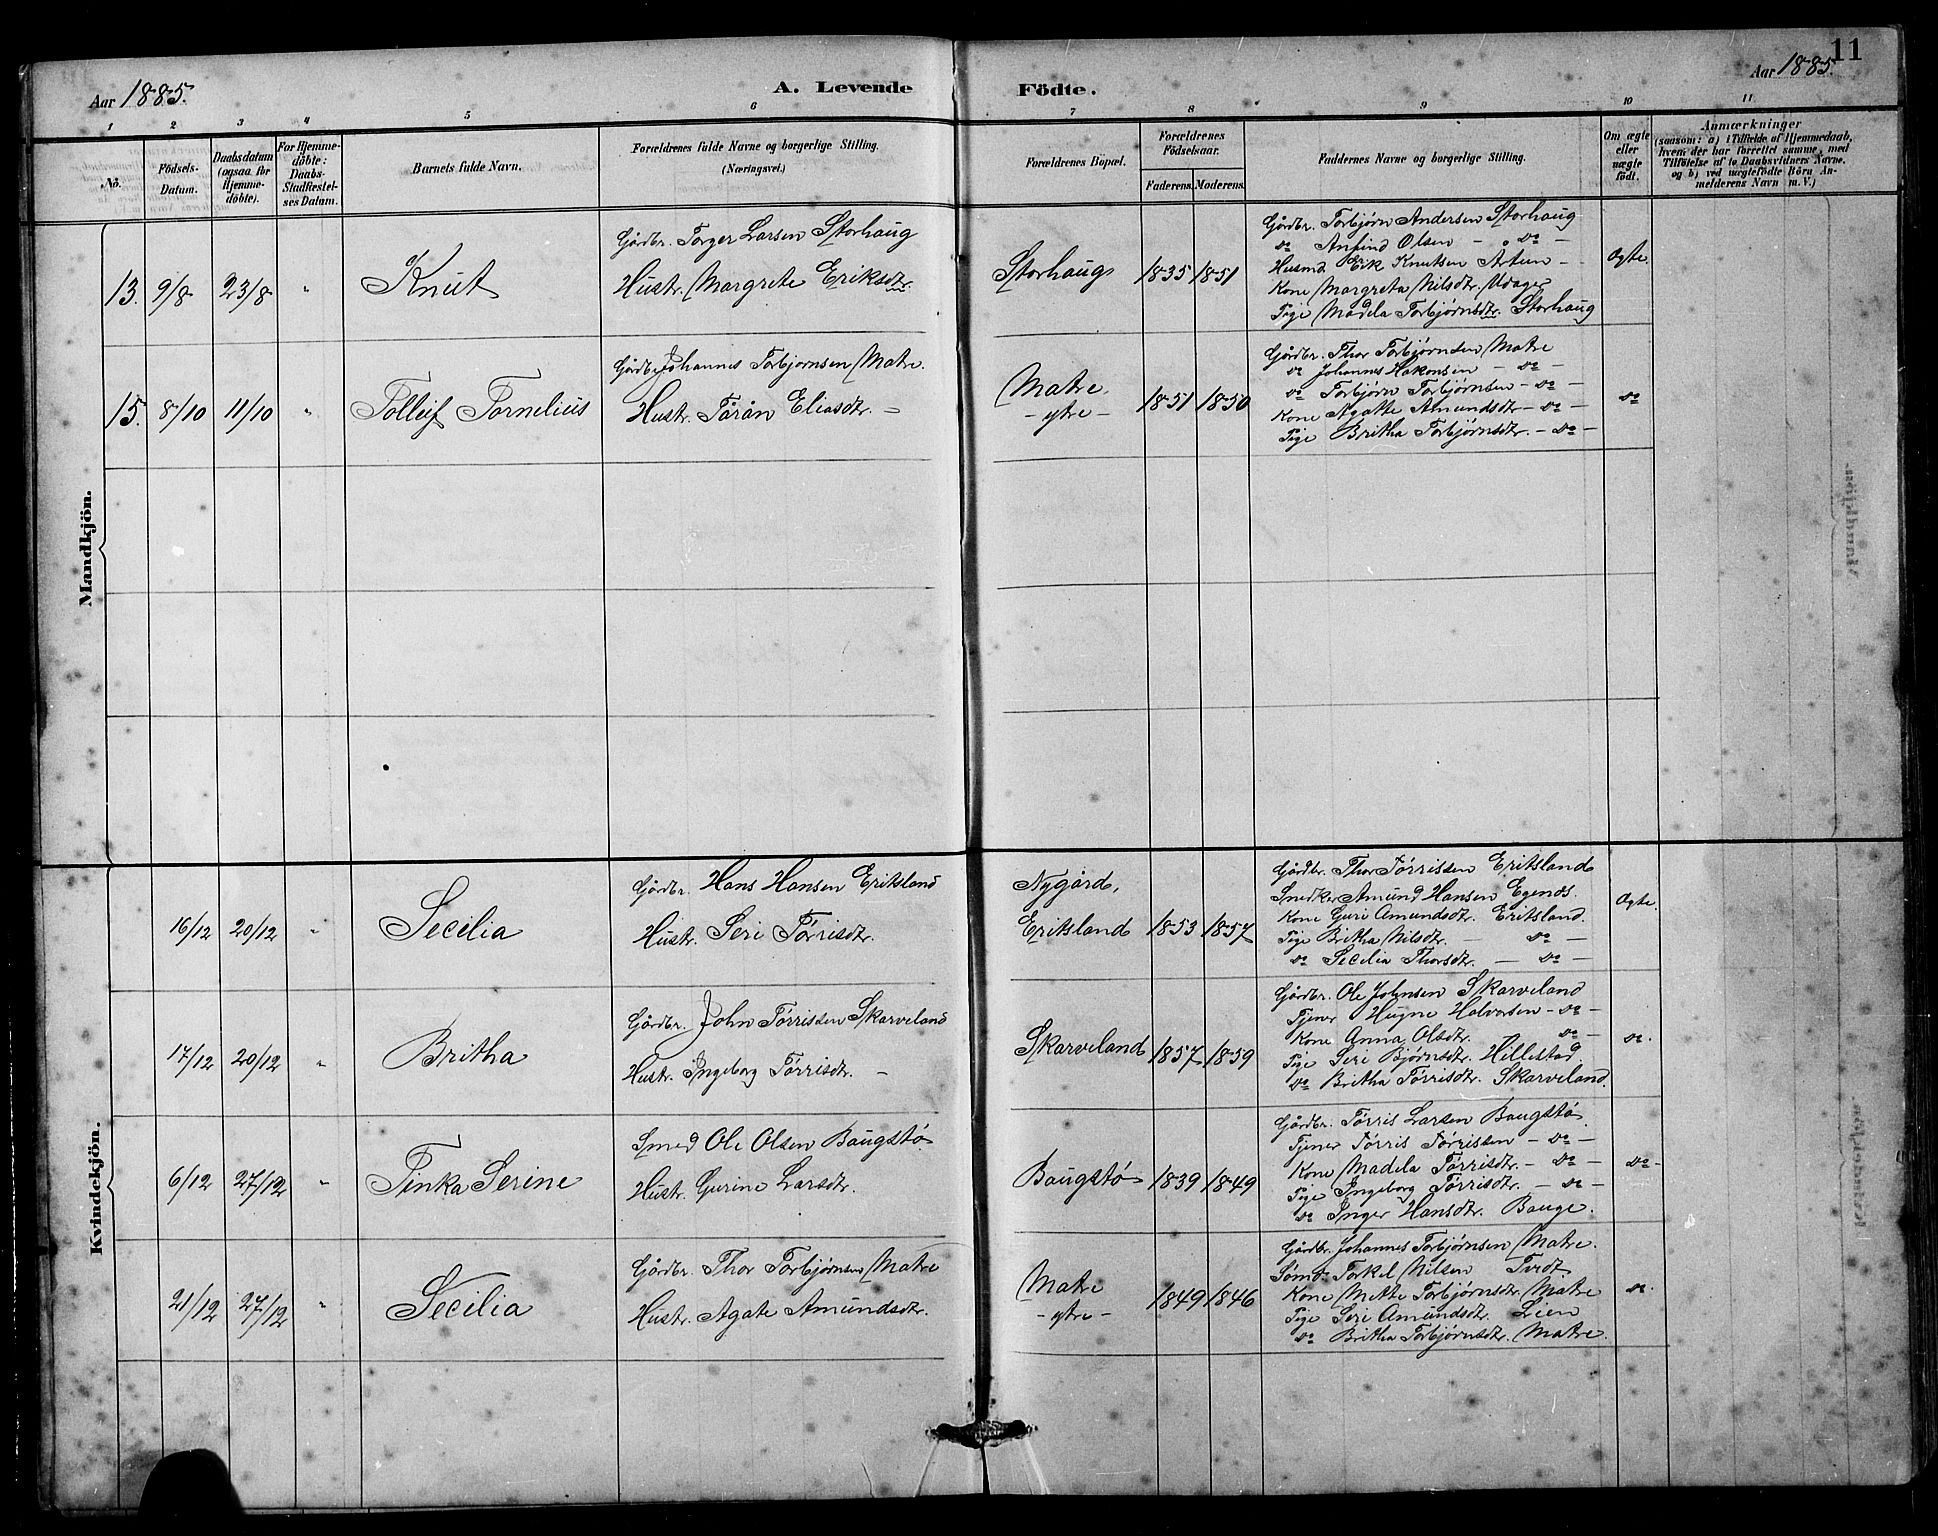 11
Aar 1885.
A. Levende Fødte.
Aar 1885.
1 2 3 4 5 6 7 8 9 10 11
No.
Fødsels-Datum.
Daabsdatum (ogsaa for Hjemme-døbte).
For Hjemme-døbte: Daabs-Stadfæstel-ses Datum.
Barnets fulde Navn.
Forældrenes fulde Navne og borgerlige Stilling.
(Næringsvei.)
Forældrenes Bopæl.
Forældrenes Fødselsaar.
Faderens. Moderens.
Faddernes Navne og borgerlige Stilling.
Om ægte eller uægte født.
Anmærkninger
(saasom: a) i Tilfælde af Hjemmedaab, hvem der har forrettet samme, med Tilføielse af to Daabsvidners Navne, og b) ved uægtefødte Børn An-melderens Navn m. V.)
Mandkjøn.
13. 9/8 23/8 " Knut
Gårdbr. Torger Larsen Storhaug
Hustr. Margrete Eriksdtr.
Storhaug 1835 1851
Gårdbr. Torbjørn Andersen Storhaug
do Anfind Olsen - do -
Husmd Erik Knutsen Artun -
Kone Margreta Nilsdtr. Udager
Pige Madela Torbjørnsdtr. Storhaug
Ægte.
15. 8/10 11/10 " Tolleif Tornelius
Gårdbr. Johannes Torbjørnsen Matre.
Hustr. Tårån Eliasdtr. -
Matre
- ytre -
1851 1850
Gårdbr. Thor Torbjørnsen Matre
do Johannes Håkonsen - do -
do Torbjørn Torbjørnsen - do -
Kone Agatte Amundsdtr - do -
Pige Britha Torbjørnsdtr. - do -
do
Kvindekjøn.
16/12 20/12 " Secilia
Gårdbr. Hans Hansen Eritsland
Hustr. Seri Tørrisdtr.
Nygård,
Eritsland 1853 1857
Gårdbr. Thor Tørrissen Eritsland
Snedker Amund Hansen Egends.
Kone Guri Amundsdtr. Eritsland.
Pige Britha Nilsdtr. - do -
do Secilia Thorsdtr. - do -
Ægte.
17/12 20/12 " Britha
Gårdbr. John Tørrissen Skarveland
Hustr. Ingeborg Tørrisdtr. -
Skarveland 1857 1859
Gårdbr. Ole Johnsen Skarveland
Tjener Hugne Halvorsen - do -
Kone Anna Olsdtr. do -
Pige Seri Bjørnsdtr. Hillestad.
do Britha Tørrisdtr. Skarveland.
do.
6/12 27/12 " Tinka Serine
Smed Ole Olsen Baugstø
Hustr. Gurine Larsdtr.
Baugstø 1839 1849
Gårdbr. Tørris Larsen Baugstø
Tjener Tørris Tørrissen - do -
Kone Madela Tørrisdtr. - do -
Pige Ingeborg Tørrisdtr. - do -
do Inger Hansdtr. Bauge.
do -
21/12 27/12 " Secilia
Gårdbr. Thor Torbjørnsen Matre
Hustr. Agate Amundsdtr.
Matre
- ytre -
1849 1846
Gårdbr. Johannes Torbjørnsen Matre.
Sømd Torkel Nilsen Tvedt
Kone Mette Torbjørnsdtr. Matre
Pige Seri Amundsdtr. Lien
do Britha Torbjørnsdtr. Matre.
do.